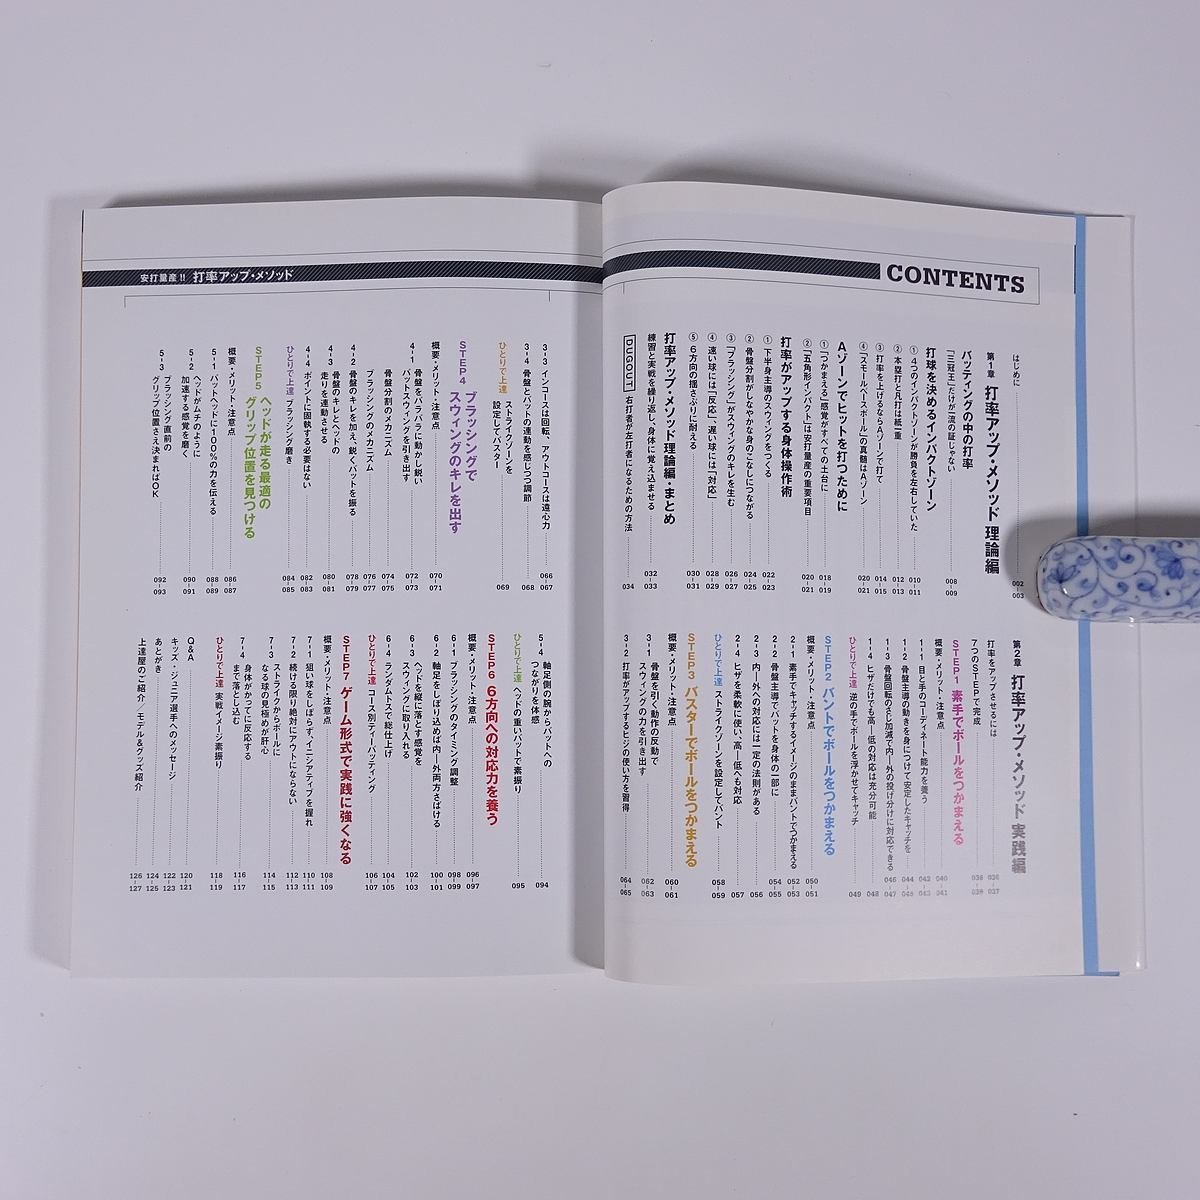 CONTENTS
はじめに 002-003
第1章 打率アップ・メソッド 理論編
バッティングの中の打率
「三冠王」だけが一流の証じゃない 008-009
打球を決めるインパクトゾーン
① 4つのインパクトゾーンが勝負を左右していた 010-011
② 本塁打と凡打は紙一重 012-013
③ 打率を上げるならAゾーンで打て 014-015
④ 「スモールベースボール」の真髄はAゾーン 020-021
Aゾーンでヒットを打つために
① 「つかまえる」感覚がすべての土台に 018-019
② 「五角形インパクト」は安打量産の重要項目 020-021
打率がアップする身体操作術
① 下半身主導のスウィングをつくる 022-023
② 骨盤分割がしなやかな身のこなしにつながる 024-025
③ 「ブラッシング」がスウィングのキレを生む 026-027
④ 速い球には「反応」、遅い球には「対応」 028-029
⑤ 6方向の揺さぶりに耐える 030-031
打率アップ・メソッド理論編・まとめ
練習と実戦を繰り返し、身体に覚え込ませる 032-033
DUGOUT 右打者が左打者になるための方法 034
第2章 打率アップ・メソッド 実践編
打率をアップさせるには 036-037
7つのSTEPで完成 038-039
STEP1 素手でボールをつかまえる
概要・メリット・注意点 040-041
1-1 目と手のコーディネート能力を養う 042-043
1-2 骨盤主導の動きを身につけて安定したキャッチを 044-045
1-3 骨盤回転のさじ加減で内―外の投げ分けに対応できる 046-047
1-4 ヒザだけでも高―低の対応は充分可能 048
ひとりで上達 逆の手でボールを浮かせてキャッチ 049
STEP2 バントでボールをつかまえる
概要・メリット・注意点 050-051
2-1 素手でキャッチするイメージのままバントでつかまえる 052-053
2-2 骨盤主導でバットを身体の一部に 054-055
2-3 内―外への対応には一定の法則がある 056
2-4 ヒザを柔軟に使い、高―低へも対応 057
ひとりで上達 ストライクゾーンを設定してバント 058-059
STEP3 バスターでボールをつかまえる
概要・メリット・注意点 060-061
3-1 骨盤を引く動作の反動で
スウィングの力を引き出す 062-063
3-2 打率がアップするヒジの使い方を習得 064-065
安打量産!! 打率アップ・メソッド
3-3 インコースは回転、アウトコースは遠心力 066-067
3-4 骨盤とバットの連動を感じつつ調節 068
ひとりで上達 ストライクゾーンを
設定してバスター 069
STEP4 ブラッシングで
スウィングのキレを出す
概要・メリット・注意点 070-071
4-1 骨盤をバラバラに動かし鋭い
バットスウィングを引き出す 072-073
骨盤分割のメカニズム 074-075
ブラッシングのメカニズム 076-077
4-2 骨盤のキレを加え、鋭くバットを振る 078-079
4-3 骨盤のキレとヘッドの
走りを連動させる 080-081
4-4 ポイントに固執する必要はない 082-083
ひとりで上達 ブラッシング磨き 084-085
STEP5 ヘッドが走る最適の
グリップ位置を見つける
概要・メリット・注意点 086-087
5-1 バットヘッドに100%の力を伝える 088-089
5-2 ヘッドがムチのように
加速する感覚を磨く 090-091
5-3 ブラッシング直前の
グリップ位置さえ決まればOK 092-093
5-4 軸足側の腕からバットへの
つながりを体感 094
ひとりで上達 ヘッドの重いバットで素振り 095
STEP6 6方向への対応力を養う
概要・メリット・注意点 096-097
6-1 ブラッシングのタイミング調整 098-099
6-2 軸足をしぼり込めば内―外両方さばける 100-101
6-3 ヘッドを縦に落とす感覚を
スウィングに取り入れる 102-103
6-4 ランダムトスで総仕上げ 104-105
ひとりで上達 コース別ティーバッティング 106-107
STEP7 ゲーム形式で実践に強くなる
概要・メリット・注意点 108-109
7-1 狙い球をしぼらず、イニシアティブを握れ 110-111
7-2 続ける限り絶対にアウトにならない 112-113
7-3 ストライクからボールに
なる球の見極めが肝心 114-115
7-4 身体がかってに反応する
まで落とし込む 116-117
ひとりで上達 実戦イメージ素振り 118-119
Q&A 120-121
キッズ・ジュニア選手へのメッセージ 122-123
あとがき 124-125
上達屋のご紹介/モデル&グッズ紹介 126-127